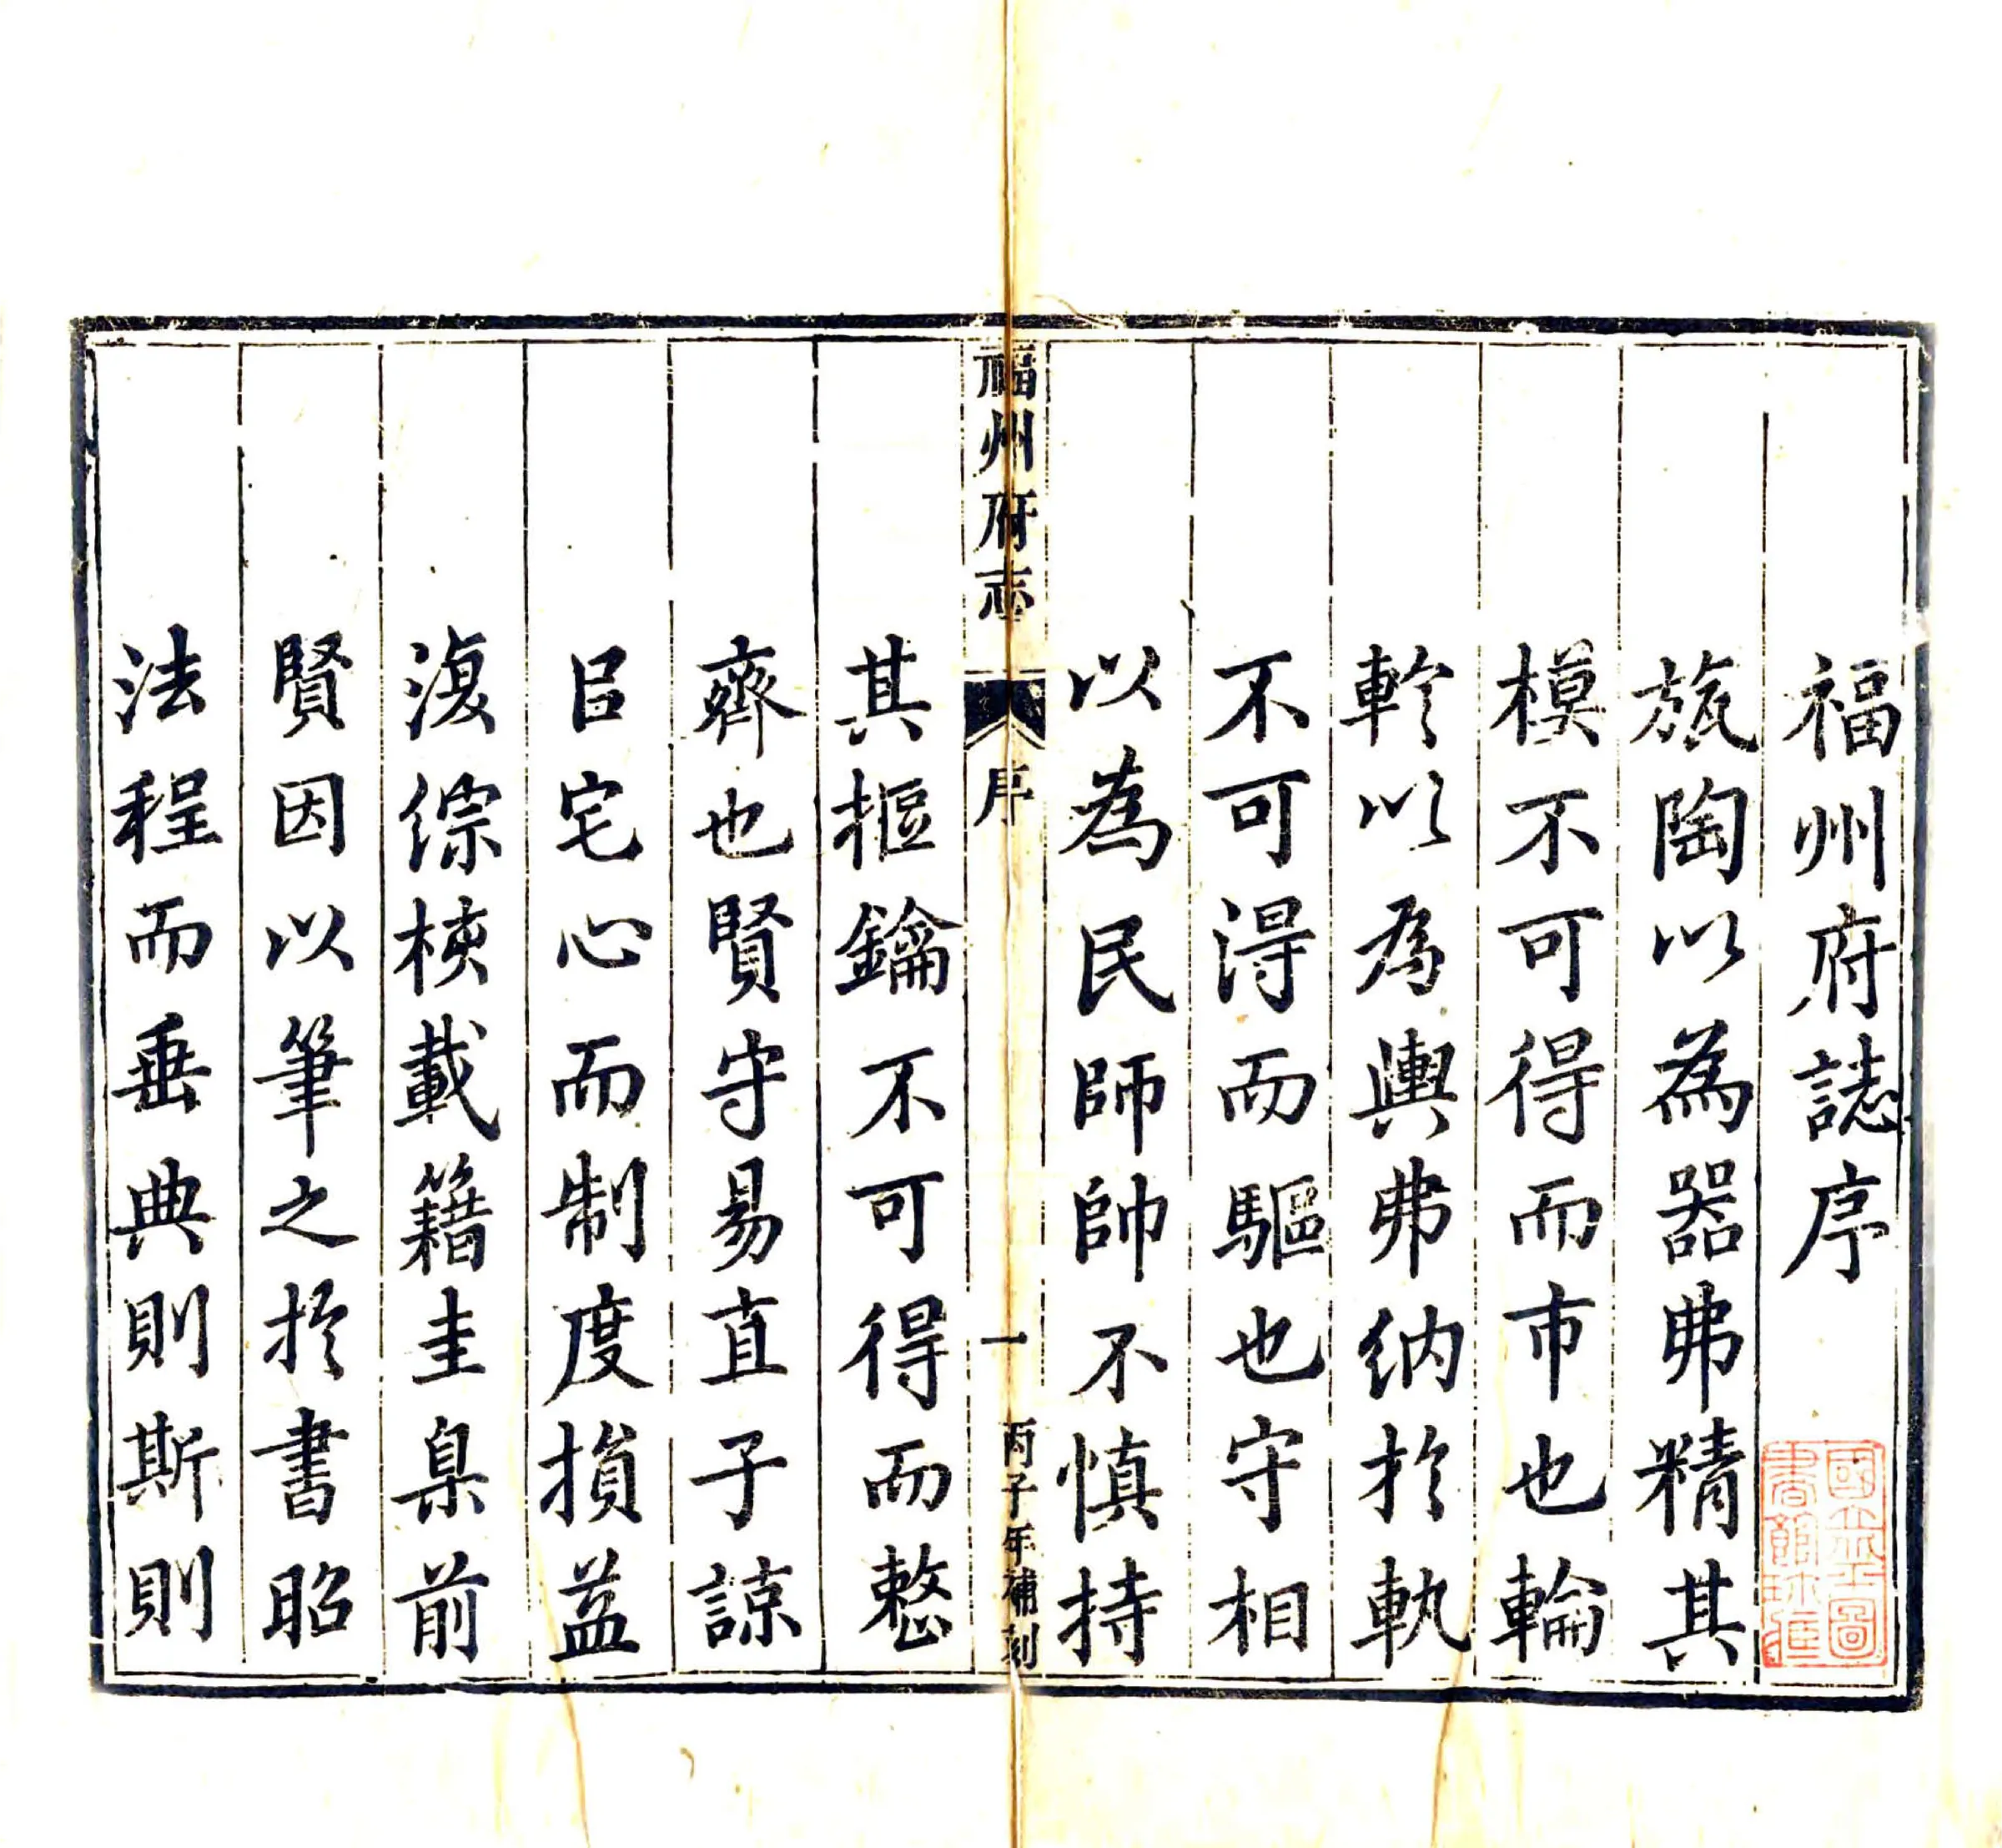 福州府誌序
旊陶以為器弗精其
模不可得而市也輪
軫以為輿弗纳於軌
不可淂而驅也守相
以為民師帥不慎持
福州府志
序
一
丙子年補刻
其摳鑰不可得而整
齊也賢守易直子諒
㠯宅心而制度損益
復綜核載籍圭臬前
賢因以筆之於書昭
法程而垂典則斯則
國立北平圖
書館珍藏